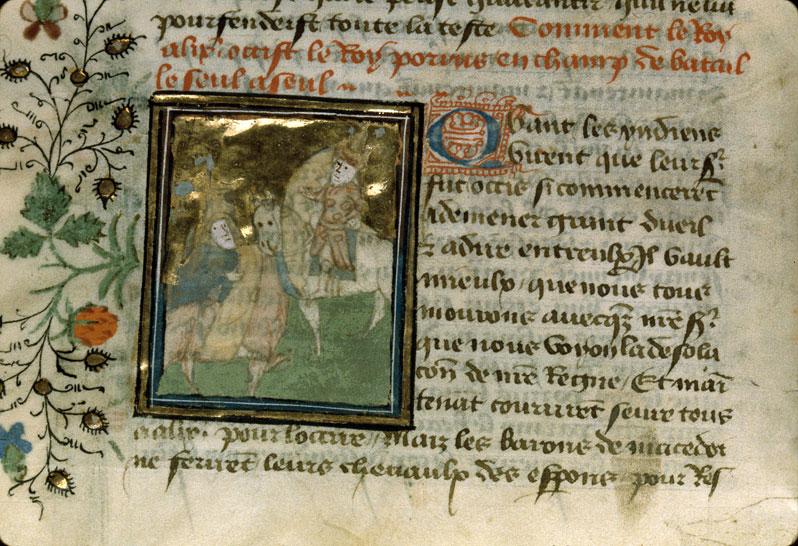 pourfendeist toute la teste Comment le Roy
alix. occist le Roy porrus en champ de batail
le seul a seul
Quant les yndiens
virent que leur sr
fut occis si commencerēt
a demener grant dueil
et a dire entreulx Il vault
mieulx que nous tous
mourons avecqz nr̄e sr
que nous voyons la desola
cōn de nr̄e Regne Et main
tenāt coururēt seure tous
a alix. pour locire Maiz les barons de macedoī
ne ferirēt leurs chevaulx des esperons pour Res